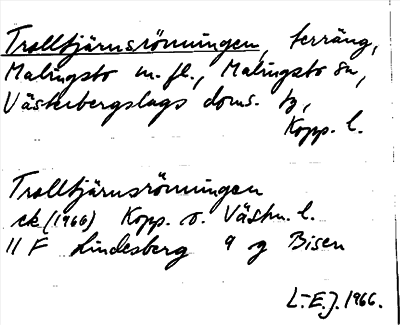 Trolltjärnsrönningen, terräng,
Malingsbo m. fl., Malingsbo sn,
Västerbergslags doms. tg,
Kopp. l.
Trolltjärnsrönningen
ek (1966) Kopp. o. Västm. l.
11 F Lindesberg 9 g Bisen
L.-E.J. 1966.